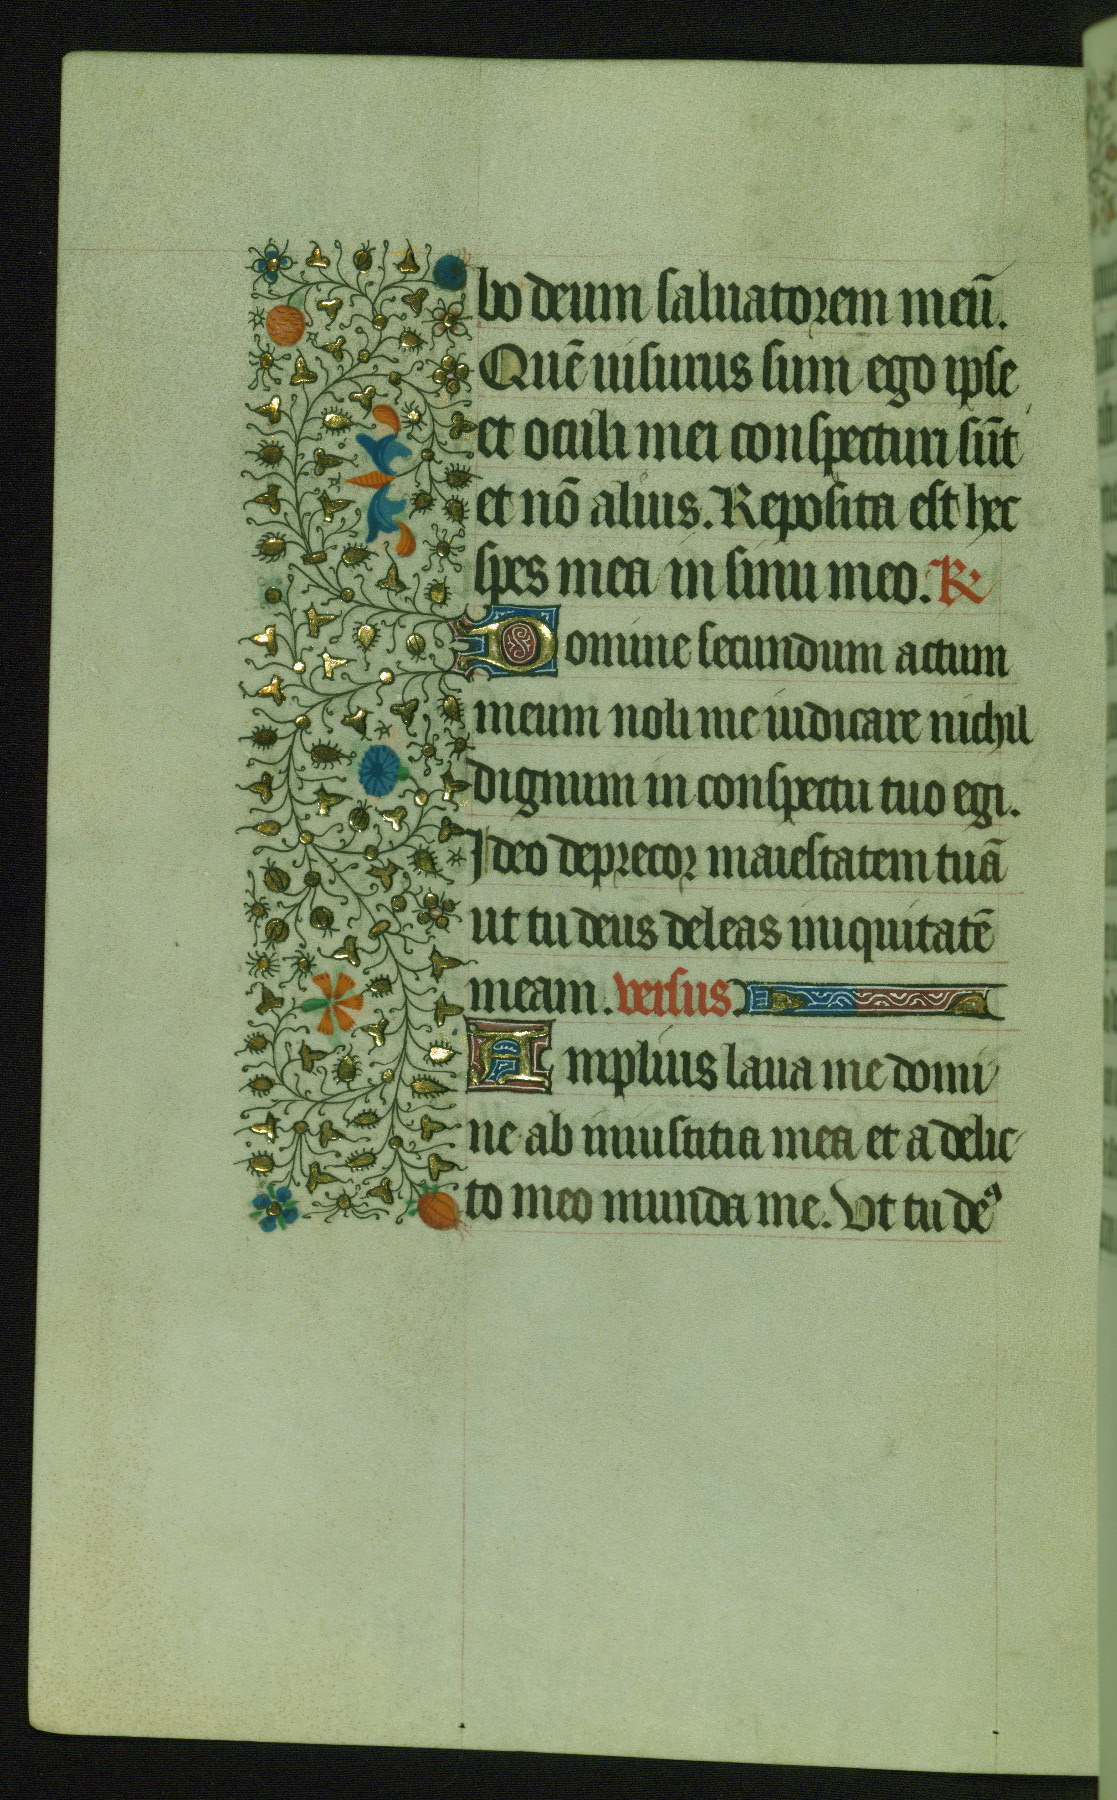 bo deum saluatorem meū.
Quē uisurus sum ego ipse
et oculi mei conspecturi sūt
et nō alius. Reposita est hec
spes mea in sinu meo. R
Domine secundum actum
meum noli me iudicare nichil
dignum in conspectu tuo egi.
Ideo deprecor maiestatem tuā
ut tu deus deleas iniquitatē
meam. versus
Amplius laua me domi
ne ab iniustitia mea et a delic
to meo munda me. Vt tu deꝰ